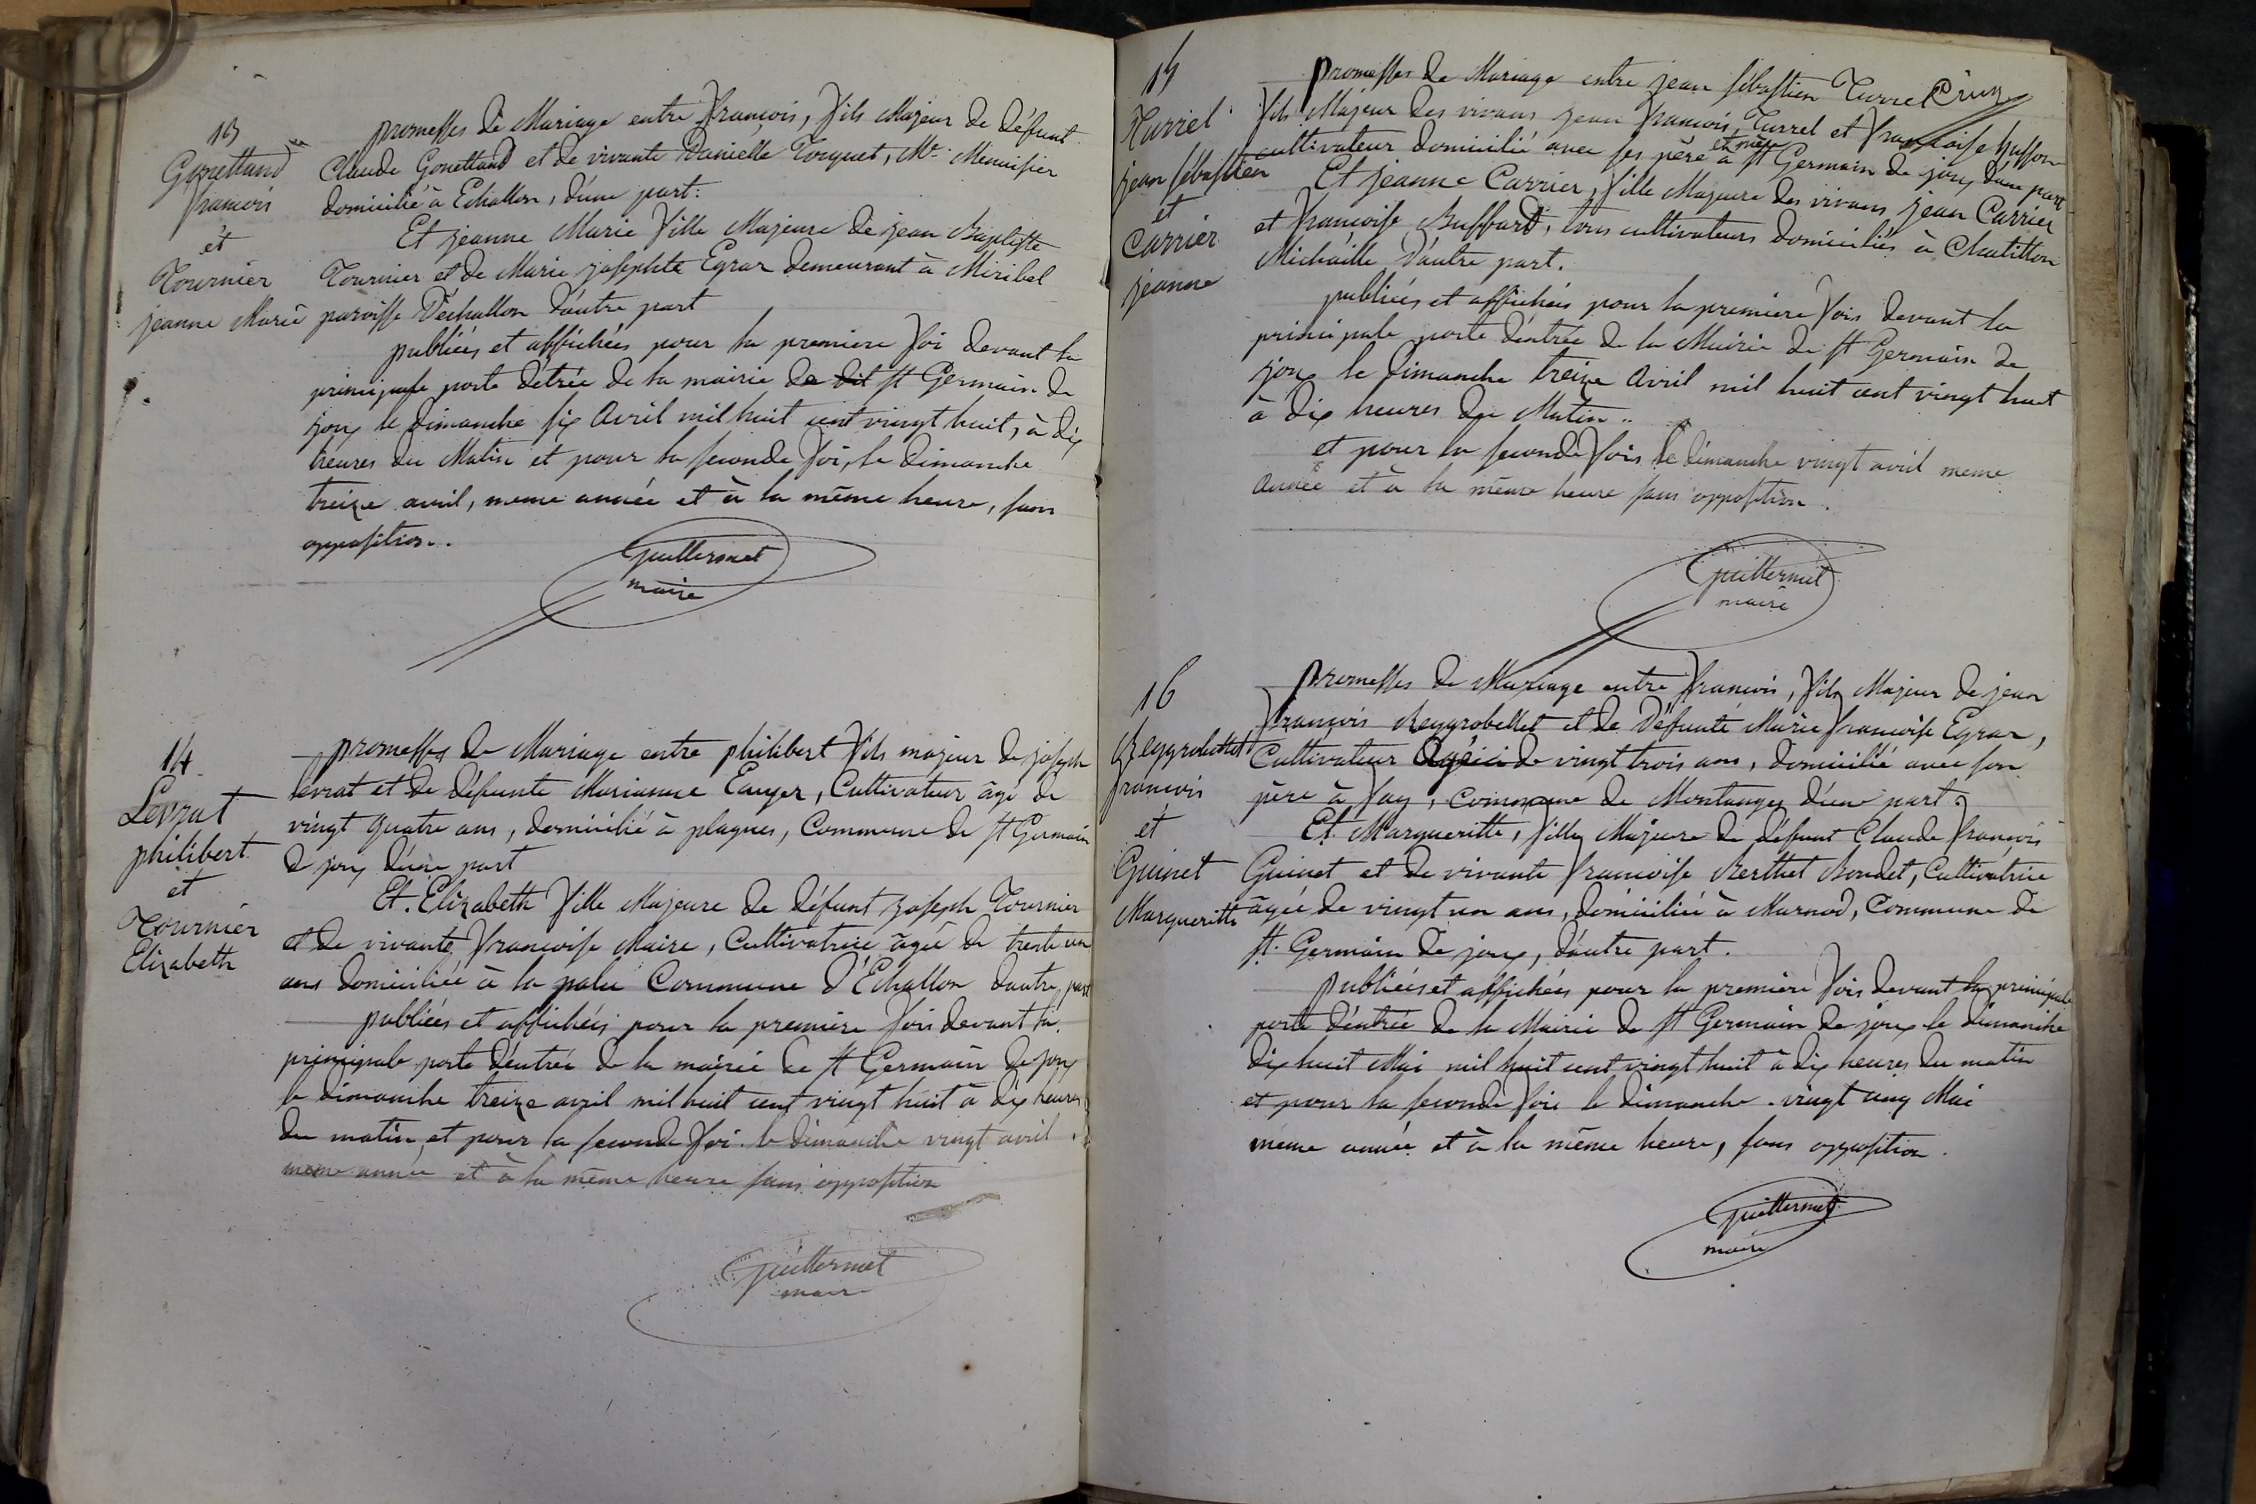 13
Gonettand
françois
et
Tournier
jeanne Marie
promesses de Mariage entre françois, fils Majeur de défunt
Claude Gonettand et de vivante Danielle Torquet, Me Menuisier
domicilié à Echallon, d'une part.
Et jeanne Marie fille Majeure de jean Baptiste
Tournier et de Marie josephte Egraz demeurant à Miribel
paroisse D'échallon d'autre part
publiées et affichées pour la premiere foi devant la
principale porte d'etrée de la mairie de dit st Germain de
joux le dimanche six avril mil huit cent vingt huit, à dix
heures du Matin et pour la seconde foi, le dimanche
treize avril, meme année et à la même heure, sans
opposition.
Guillermet
maire
14
Levrat
philibert
et
Tournier
Elizabeth
promesses de Mariage entre philibert fils majeur de joseph
levrat et de défunte Marianne Eauyer, Cultivateur âgé de
vingt quatre ans, domicilié à plagnes, Commune de st Germain
de joux d'une part
Et Elizabeth fille Majeure de défunt joseph Tournier
et de vivante françoise Maire, Cultivatrice âgée de trente un
ans domiciliée à la palu Commune d'Echallon d'autre part
publiées et affichées pour la premiere fois devant la
principale porte d'entrée de la mairie de st Germain de joux
le dimanche treize avril mil huit cent vingt huit à dix heures
du matin et pour la seconde foi le dimanche vingt avril
meme année et à la même heure sans opposition
Guillermet
maire
15
Turrel
jean sébastien
et
Carrier
jeanne
promesses de Mariage entre jean sébastien Turrel Cruz
fils Majeur des vivans jean françois Turrel et françoise Husson
cultivateur domicilié avec ses père et mère à st Germain de joux d'une part
Et jeanne Carrier, fille Majeure des vivans jean Carrier
et françoise Buffard, tous cultivateurs domiciliés à Chatillon
Michaille d'autre part.
publiées et affichées pour la premiere fois devant la
principale porte d'entrée de la Mairie de st Germain de
joux le dimanche treize avril mil huit cent vingt huit
à dix heures du Matin..
et pour la seconde fois le dimanche vingt avril meme
année et à la même heure sans opposition.
Guillermet
maire
16
Reygrobellet
françois
et
Guinet
Margueritte
promesses de Mariage entre françois, fils Majeur de jean
françois Reygrobellet et de défunte Marie françoise Egraz,
Cultivateur âgé de vingt trois ans, domicilié avec son
père à fay, Commune de Montanges d'une part
Et Margueritte, fille Majeure de défunt Claude françois
Guinet et de vivante françoise Berthet Bondet, Cultivatrice
âgée de vingt un ans, domiciliée à Marnod, Commune de
st. Germain de joux, d'autre part.
publiées et affichées pour la première fois devant la principale
porte d'entrée de la Mairie de st Germain de joux le dimanche
dix huit Mai mil huit cent vingt huit à dix heures du matin
et pour la seconde foi le dimanche vingt cinq Mai
même année et à la même heure, sans opposition.
Guillermet
maire